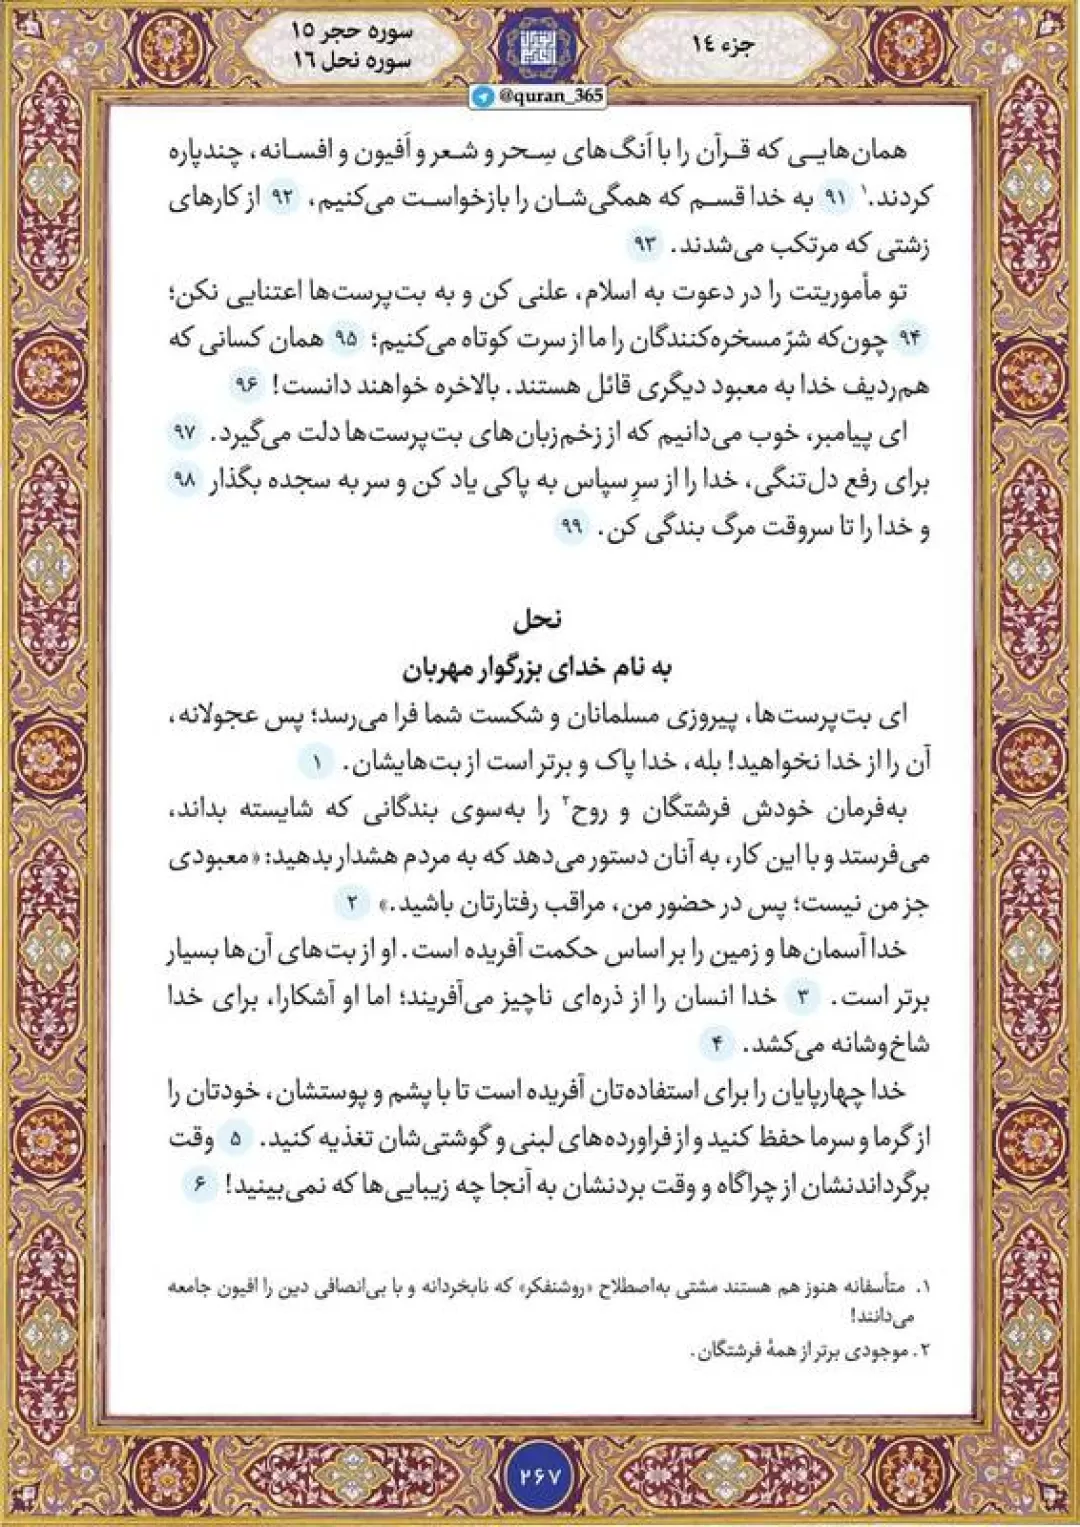 جزء ١٤
سوره حجر ١٥
سوره نحل ١٦
@quran_365
همان‌هایی که قرآن را با اَنگ‌های سِحر و شعر و اَفیون و افسانه، چندپاره
کردند.۱ ۹۱ به خدا قسم که همگی‌شان را بازخواست می‌کنیم، ۹۲ از کارهای
زشتی که مرتکب می‌شدند. ۹۳
تو مأموریتت را در دعوت به اسلام، علنی کن و به بت‌پرست‌ها اعتنایی نکن؛
۹۴ چون‌که شرّ مسخره‌کنندگان را ما از سرت کوتاه می‌کنیم؛ ۹۵ همان کسانی که
هم‌ردیف خدا به معبود دیگری قائل هستند. بالاخره خواهند دانست! ۹۶
ای پیامبر، خوب می‌دانیم که از زخم‌زبان‌های بت‌پرست‌ها دلت می‌گیرد. ۹۷
برای رفع دل‌تنگی، خدا را از سرِ سپاس به پاکی یاد کن و سر به سجده بگذار ۹۸
و خدا را تا سروقت مرگ بندگی کن. ۹۹
نحل
به نام خدای بزرگوار مهربان
ای بت‌پرست‌ها، پیروزی مسلمانان و شکست شما فرا می‌رسد؛ پس عجولانه،
آن را از خدا نخواهید! بله، خدا پاک و برتر است از بت‌هایشان. ۱
به‌فرمان خودش فرشتگان و روح۲ را به‌سوی بندگانی که شایسته بداند،
می‌فرستد و با این کار، به آنان دستور می‌دهد که به مردم هشدار بدهید: «معبودی
جز من نیست؛ پس در حضور من، مراقب رفتارتان باشید.» ۲
خدا آسمان‌ها و زمین را بر اساس حکمت آفریده است. او از بت‌های آن‌ها بسیار
برتر است. ۳ خدا انسان را از ذره‌ای ناچیز می‌آفریند؛ اما او آشکارا، برای خدا
شاخ‌وشانه می‌کشد. ۴
خدا چهارپایان را برای استفاده‌تان آفریده است تا با پشم و پوستشان، خودتان را
از گرما و سرما حفظ کنید و از فراورده‌های لبنی و گوشتی‌شان تغذیه کنید. ۵ وقت
برگرداندنشان از چراگاه و وقت بردنشان به آنجا چه زیبایی‌ها که نمی‌بینید! ۶
۱. متأسفانه هنوز هم هستند مشتی به‌اصطلاح «روشنفکر» که نابخردانه و با بی‌انصافی دین را افیون جامعه
می‌دانند!
۲. موجودی برتر از همهٔ فرشتگان.
۲۶۷